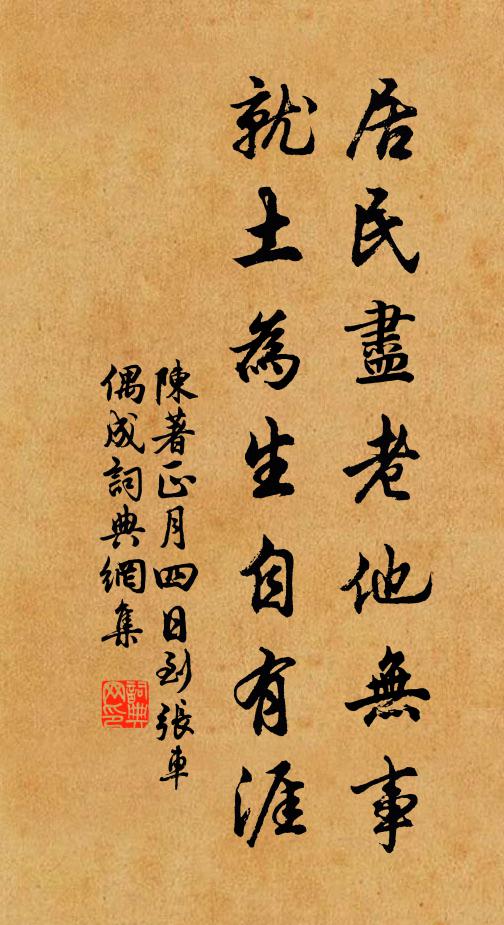 居民盡老他無事
就土為生自有涯
陳著正月四日到張車
偶成詞典網集
詞典
网印